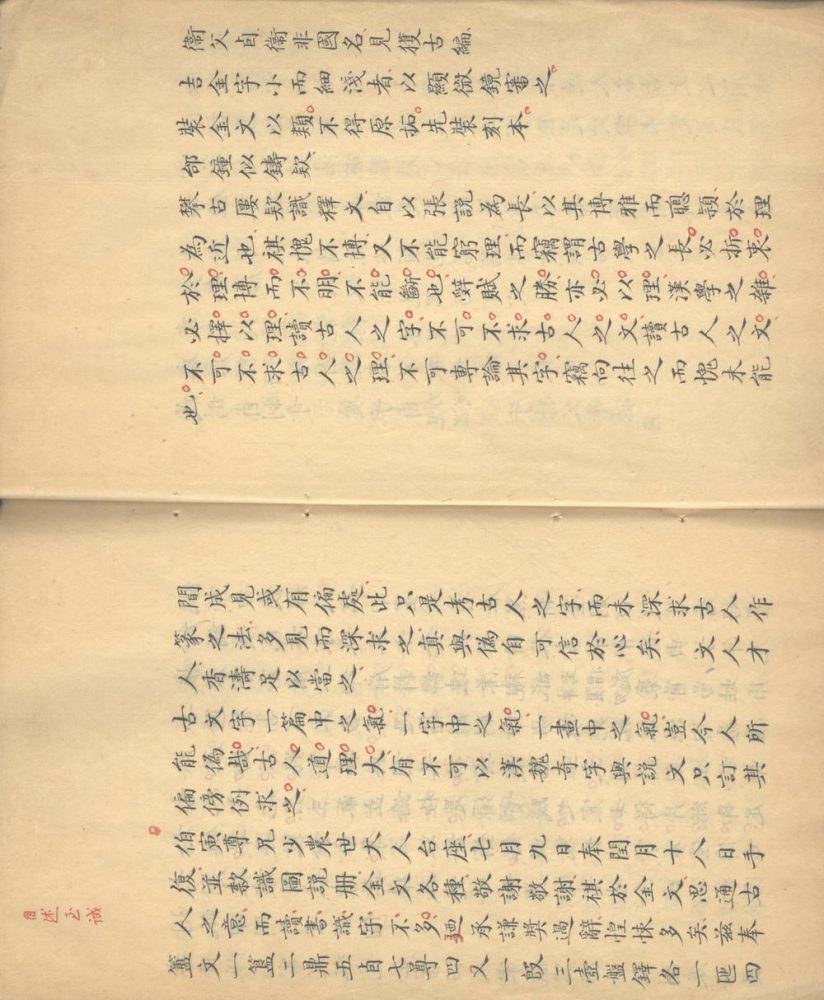 衛父卣衛非國名見獲古編
吉金字小而細淺者以顯微鏡審之
裝金文以類不得原拓先裝刻本
郘鍾似鑄款
攀古廔款識釋文自以張說為長以其博雅而聰穎於理
為近也祺愧不博又不能窮理而竊謂古學之長必折衷
於理博而不明不能斷也辭賦之勝亦必以理漢學之雜
必擇以理讀古人之字不可不求古人之文讀古人之文
不可不求古人之理不可專論其字竊向往之而愧未能
也
間成見或有偏處此只是考古人之字而未深求古人作
篆之法多見而深求之真與偽自可信於心矣 文人才
人香濤足以當之
古文字一篇中之氣一字中之氣一畫中之氣豈今人所
能偽哉古人道理大有不可以漢魏奇字與說文只訂其
偏傍例求之
伯寅尊兄少農世大人台座七月九日奉閏月十八日手
復並款識圖說冊金文各種敬謝敬謝祺於金文思通古
人之意而讀書識字不多迺承謙獎過辭惶悚多矣茲奉
簠文一簋二鼎五卣七尊四又一𣪘三壺盤鐸各一匜四